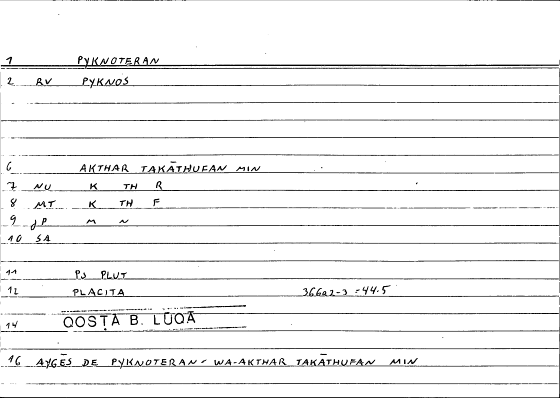 1 PYKNOTERAN
2 RV PYKNOS
6 AKTHAR TAKĀTHUFAN MIN
7 NU K TH R
8 MT K TH F
9 JP M N
10 SA
11 PS PLUT
12 PLACITA 366a2-3 = 44.5
14 QOSṬĀ B. LŪQĀ
16 AYGĒS DE PYKNOTERAN - WA-AKTHAR TAKĀTHUFAN MIN